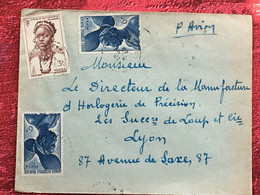 P. Avion
Monsieur
Le Directeur de la Manufacture
d'Horlogerie de Précision
Les Succrs de Loup et Cie
Lyon
87 Avenue de Saxe, 87